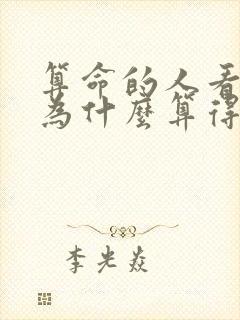 算命的人看
為什麼算得
李光焱